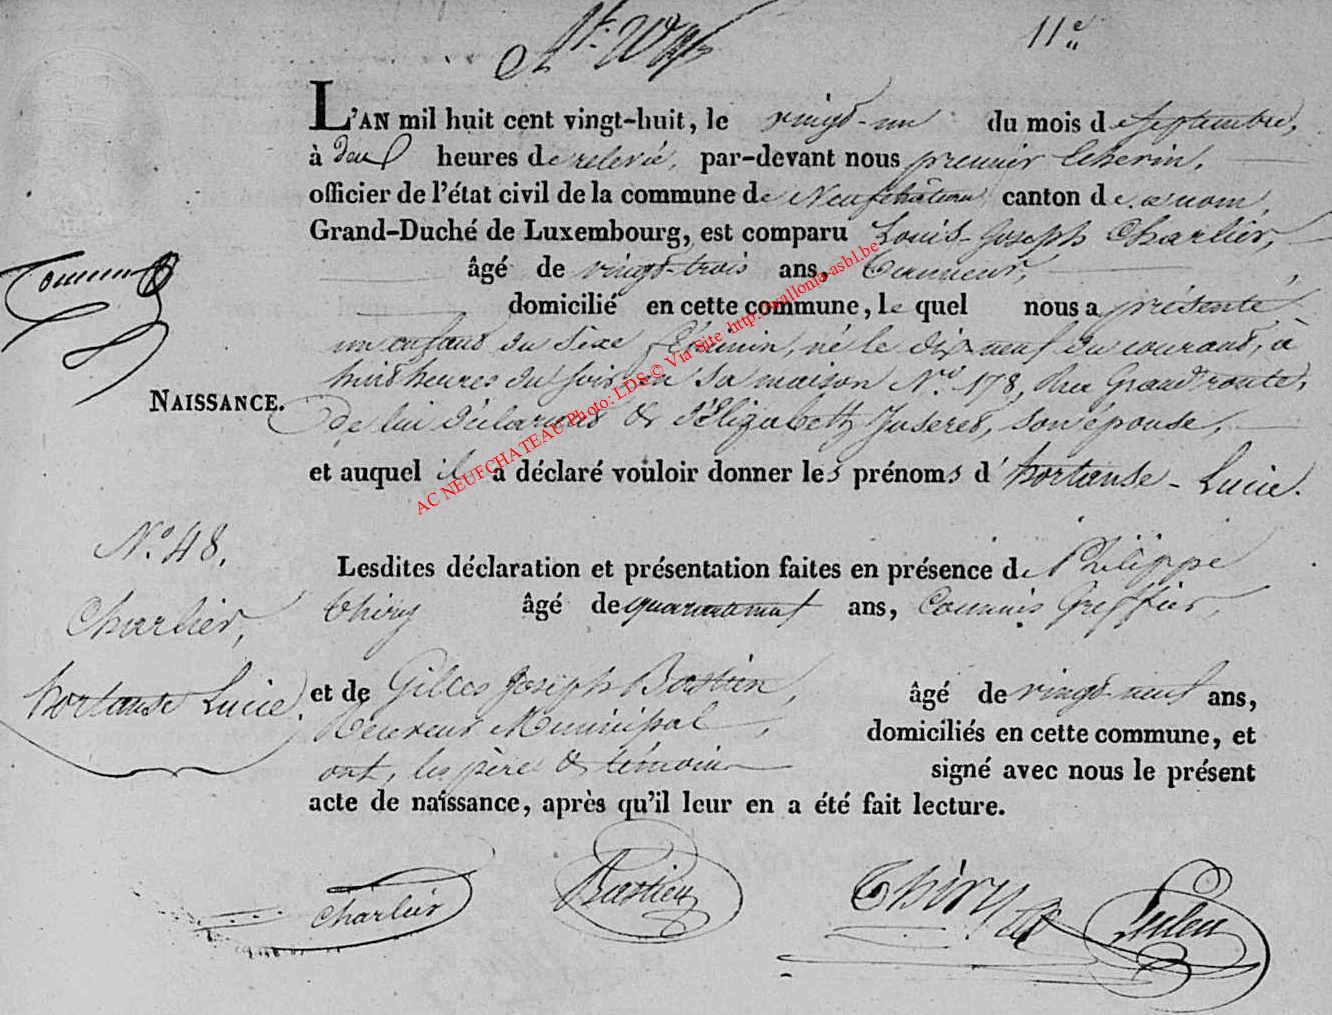 11e
L'AN mil huit cent vingt-huit, le vingt-un du mois de Septembre,
à deux heures de relevée, par-devant nous premier Echevin,
officier de l'état civil de la commune de Neufchâteau canton de ce nom,
Grand-Duché de Luxembourg, est comparu Louis-Joseph Charlier,
âgé de vingt-trois ans, Tanneur,
domicilié en cette commune, le quel nous a présenté
un enfant du Sexe féminin, né le dix-neuf du courant, à
huit heures du soir en sa maison No. 178, Rue Grand'route,
NAISSANCE.
de lui déclarant & d'Elizabeth Joseret, son épouse,
et auquel il a déclaré vouloir donner les prénoms d'hortanse-Lucie.
No. 48,
Charlier,
hortanse Lucie.
Lesdites déclaration et présentation faites en présence de Philippe
Thiry âgé de quaranteneuf ans, Commis Greffier,
et de Gilles Joseph Bastien, âgé de vingt-neuf ans,
Receveur Municipal, domiciliés en cette commune, et
ont, les père & témoins signé avec nous le présent
acte de naissance, après qu'il leur en a été fait lecture.
Charlier Bastien Thiry
AC NEUFCHATEAU Photo: LDS © Via Site http://wallonia-asbl.be